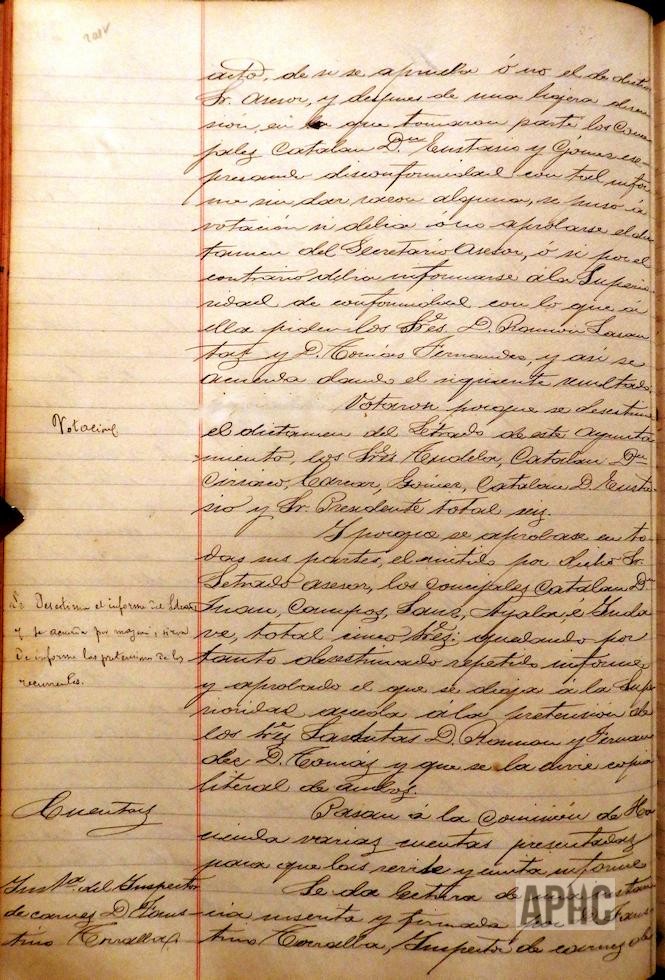 acto, de si se aprueba ó no el de dicho
Sr. Asesor, y despues de una lijera discu
sión, en la que tomaron parte los Conce
jales Catalan Dn Eustasio y Gómez es
presando disconformidad con tal infor
me sin dar razon alguna, se puso á
votación si debia ó no aprobarse el dic
tamen del Secretario Asesor, ó si por el
contrario debia informarse a la Superio
ridad de conformidad con lo que á
ella piden los Sres. D. Ramón Lasan
taz y D. Tomás Fernandez, y asi se
acuerda dando el siguiente resultado.
Votación
Votaron porque se desestime
el dictamen del Letrado de este Ayunta
miento, los Sres. Tudela, Catalan Dn
Ciriaco, Gómez, Catalan D. Eusta
sio y Sr. Presidente total seis.
Y porque se aprobase en to
das sus partes, el emitido por dicho Sr.
Letrado asesor, los concejales Catalan Dn
Juan, Campos, Sanz, Ayala, é Inda
ve, total cinco Sres: quedando por
tanto desestimado repetido informe
y aprobado el que se dirija á la Supe
rioridad acceda á la pretensión de
los Sres Lasantas D. Ramon y Fernan
dez D. Tomás y que se la dirije copia
literal de ambos.
Se Desestima el informe del Letrado
y se acuerda por mayoria sirva
de informe las pretensiones de los
recurrentes.
Cuentas
Pasan á la Comisión de Ha
cienda varias cuentas presentadas
para que las revise y emita informe
Instª. del Inspector
de carnes D. Faus
tino Torralba
Se da lectura de una instan
cia suscrita y firmada por D. Faus
tino Torralba, Inspector de carnes de
APHC